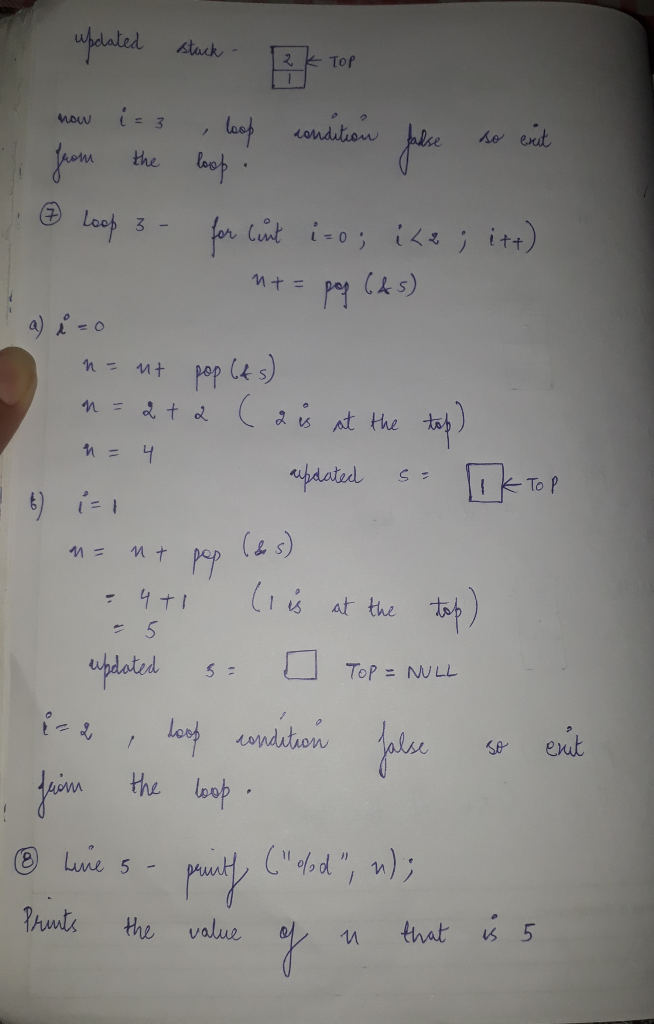 updated stack -
2 ← TOP
1
now i = 3 , loop condition false so exit
from the loop .
⑦ Loop 3 - for (int i=0 ; i<2 ; i++)
n+ = pop (&s)
a) i = 0
n = n+ pop (&s)
n = 2 + 2 ( 2 is at the top)
n = 4
updated s = 1 ← TOP
b) i = 1
n = n + pop (&s)
= 4 + 1 (1 is at the top)
= 5
updated s = TOP = NULL
i = 2 , loop condition false so exit
from the loop .
⑧ Line 5 - printf ("%d", n) ;
Prints the value of n that is 5